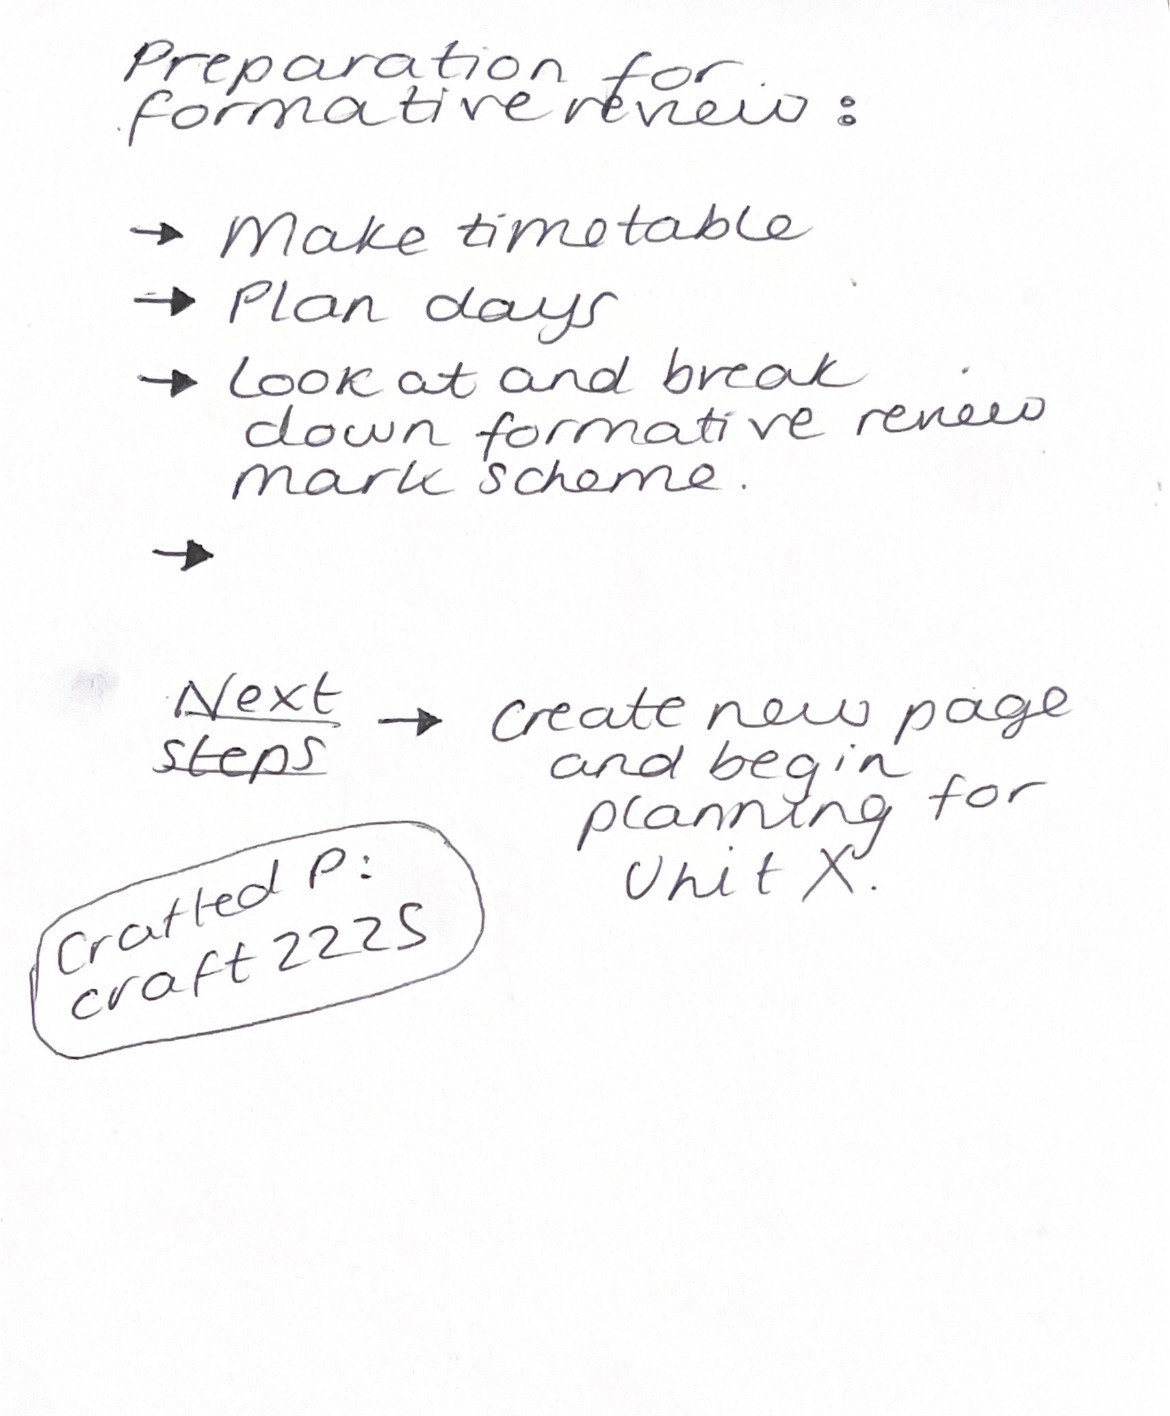 Preparation for
formative review:
→ Make timetable
→ Plan days
→ Look at and break
down formative review
mark scheme.
→
Next
steps → create new page
and begin
planning for
Unit X.
Crafted P:
craft2225